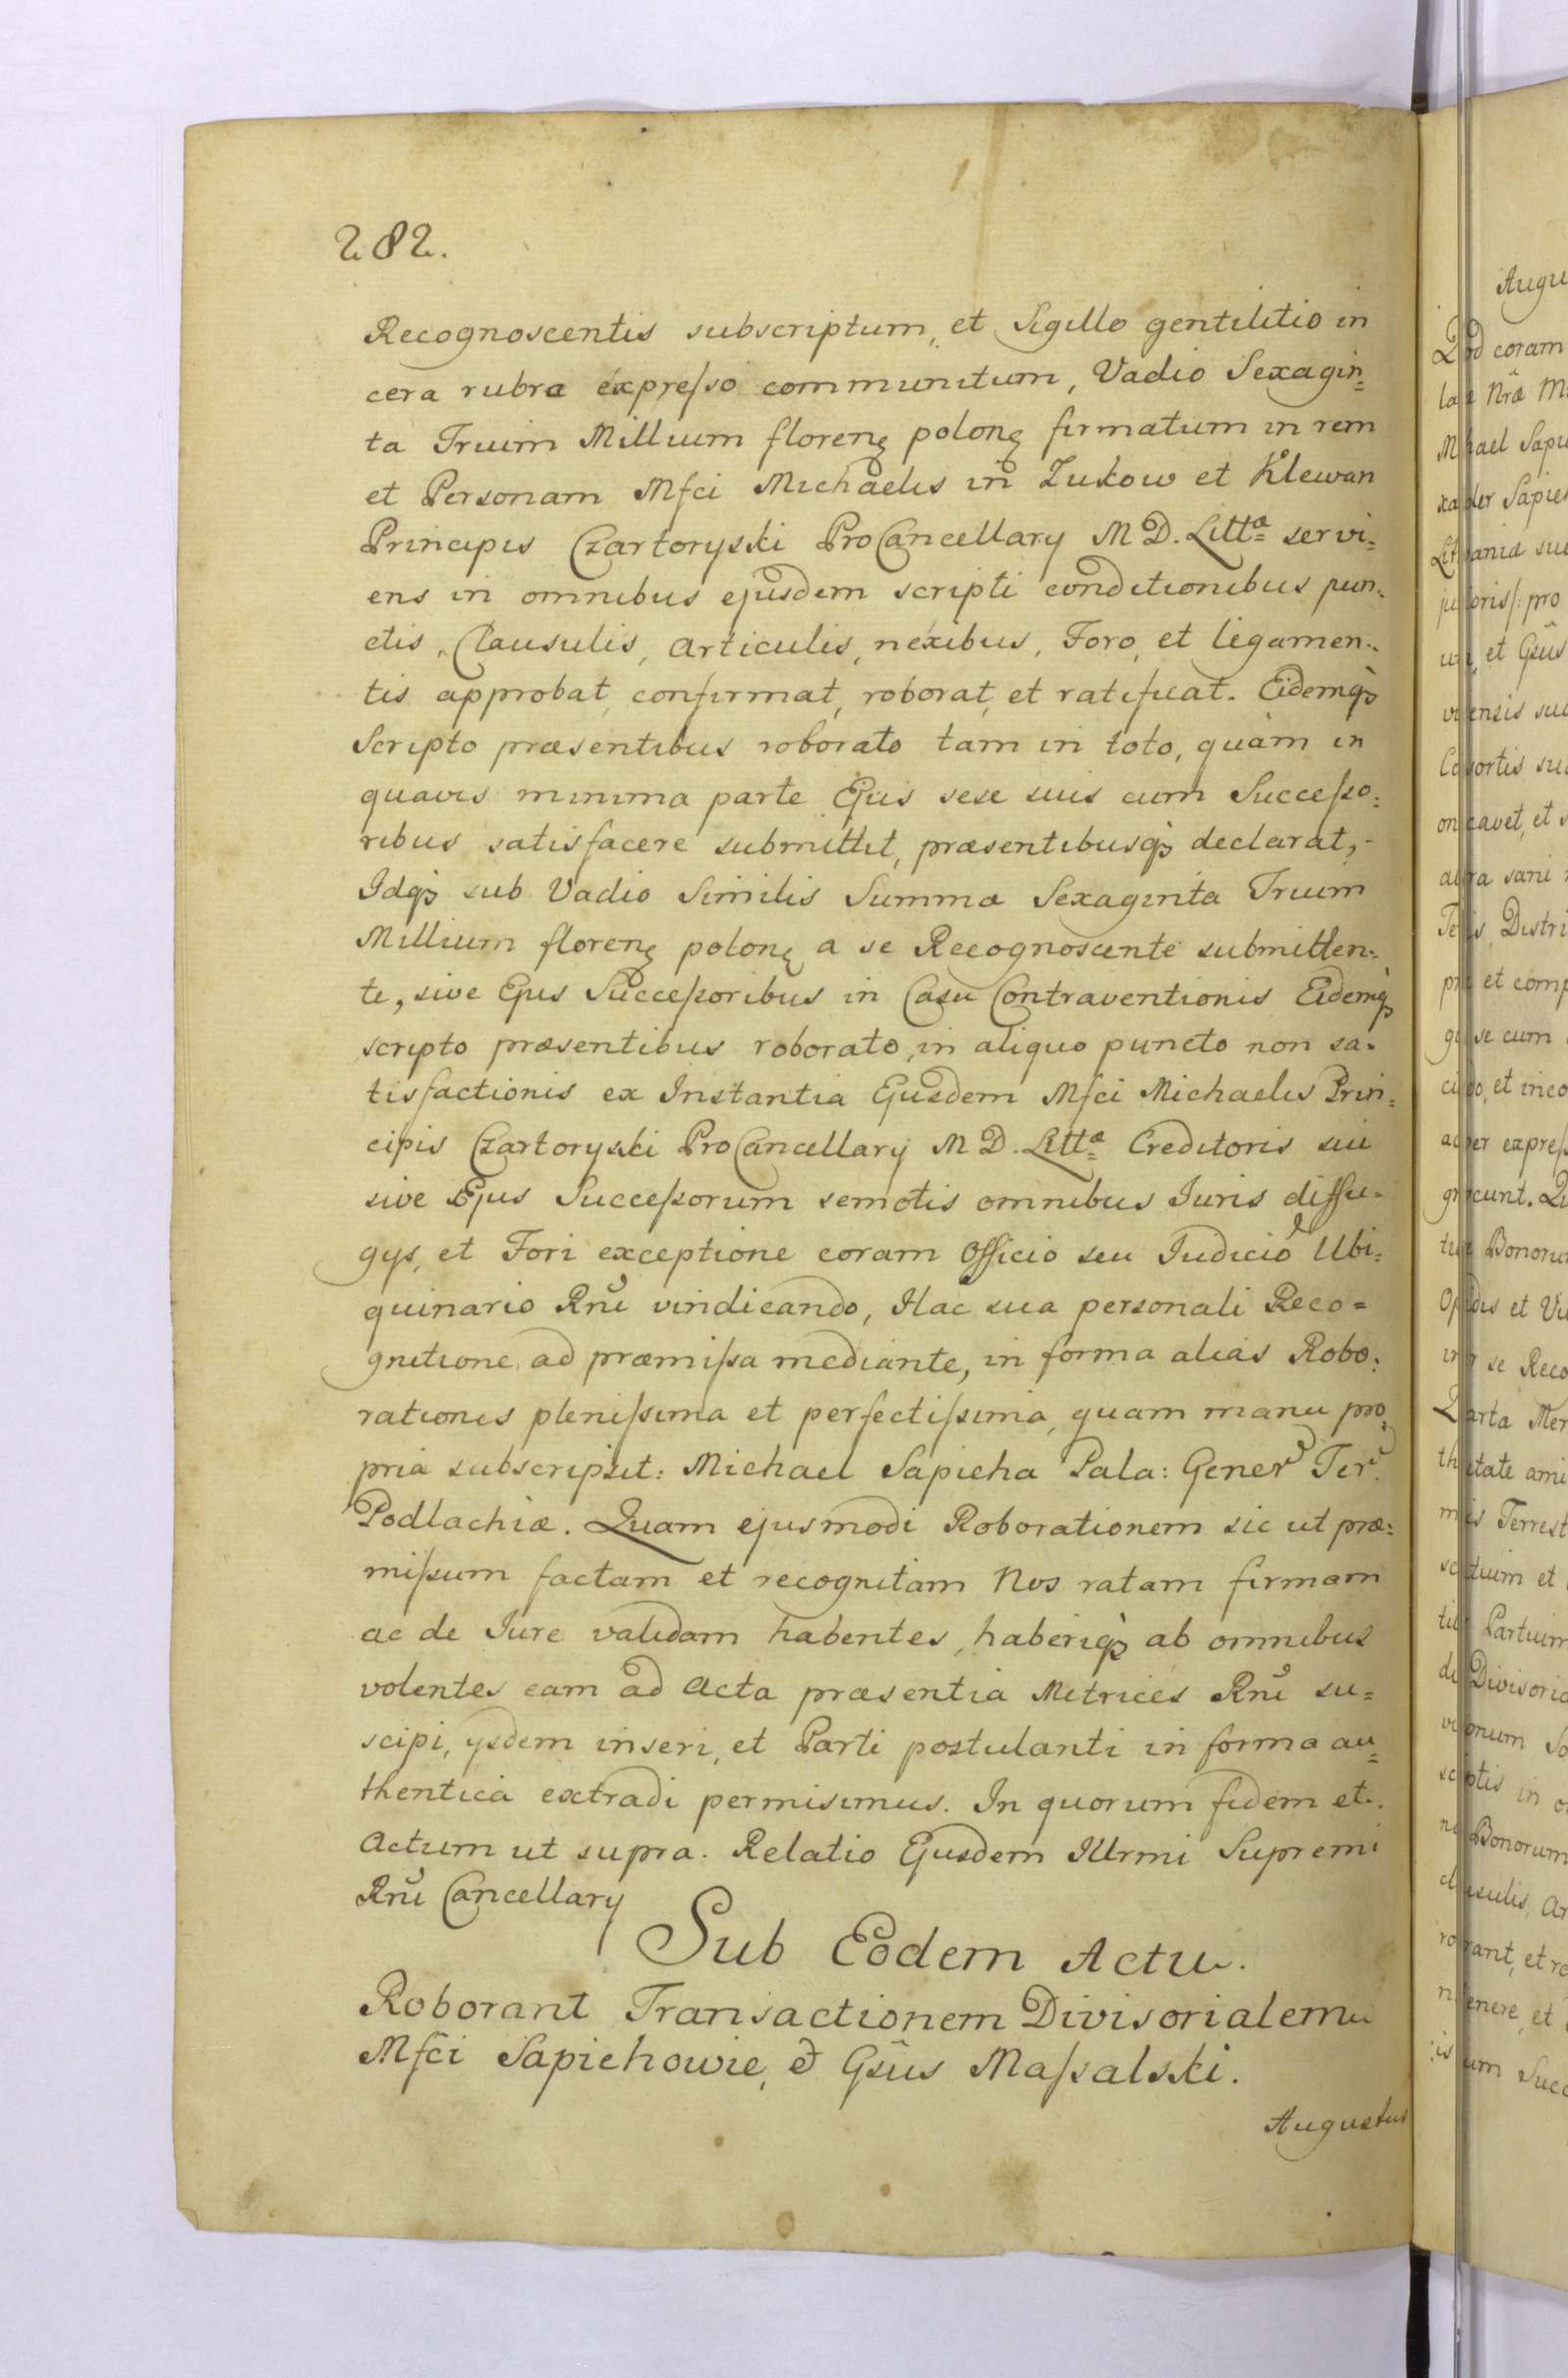 282.
Recognoscentis subscriptum, et Sigillo gentilitio in
cera rubra expreſso communitum, Vadio Sexagin=
ta Trium Millium florenꝫ polonꝫ firmatum in rem
et Personam Mfci Michaelis in Zukow et Klewan
Principis Czartoryski ProCancellarÿ M D. Littæ servi=
ens in omnibus ejusdem scripti conditionibus pun=
ctis, Clausulis, articulis, nexibus, Foro, et ligamen=
tis approbat, confirmat, roborat, et ratificat. Eidemqꝫ
Scripto præsentibus roborato tam in toto, quàm in
quavis minima parte Ejus sese suis cum Succeſso=
ribus satisfacere submittit, præsentibusqꝫ declarat,-
Idqꝫ sub Vadio Similis Summæ Sexaginta Trium
Millium florenꝫ polonꝫ a se Recognoscente submitten=
te, sive Ejus Succeſsoribus in Casu Contraventionis Eidemqꝫ
scripto præsentibus roborato, in aliquo puncto non sa=
tisfactionis ex Instantia Ejusdem Mfci Michaelis Prin=
cipis Czartoryski ProCancellarÿ M D. Littæ Creditoris sui
sive Ejus Succeſsorum semotis omnibus Iuris diffu=
gÿs, et Fori exceptione coram Officio seu Iudicio Ubi=
quinario Rnĩ vindicando, Hac sua personali Reco=
gnitione, ad præmiſsa mediante, in forma alias Robo=
rationis pleniſsima et perfectiſsima, quam manu pro=
pria subscripsit: Michael Sapieha Pala: Gener Ter.
Podlachiæ. Quam ejusmodi Roborationem sic ut præ=
miſsum factam et recognitam Nos ratam firmam
ac de Iure validam habentes, haberiqꝫ ab omnibus
volentes eam ad acta præsentia Metrices Rnĩ su=
scipi, ÿsdem inseri, et Parti postulanti in forma au=
thentica extradi permisimus. In quorum fidem et.
Actum ut supra. Relatio Ejusdem Illrmi Supremi
Rnĩ Cancellarÿ
Sub Eodem Actu.
Roborant Transactionem Divisorialem
Mfci Sapiehowie, et Gsũs Maſsalski.
Augustus